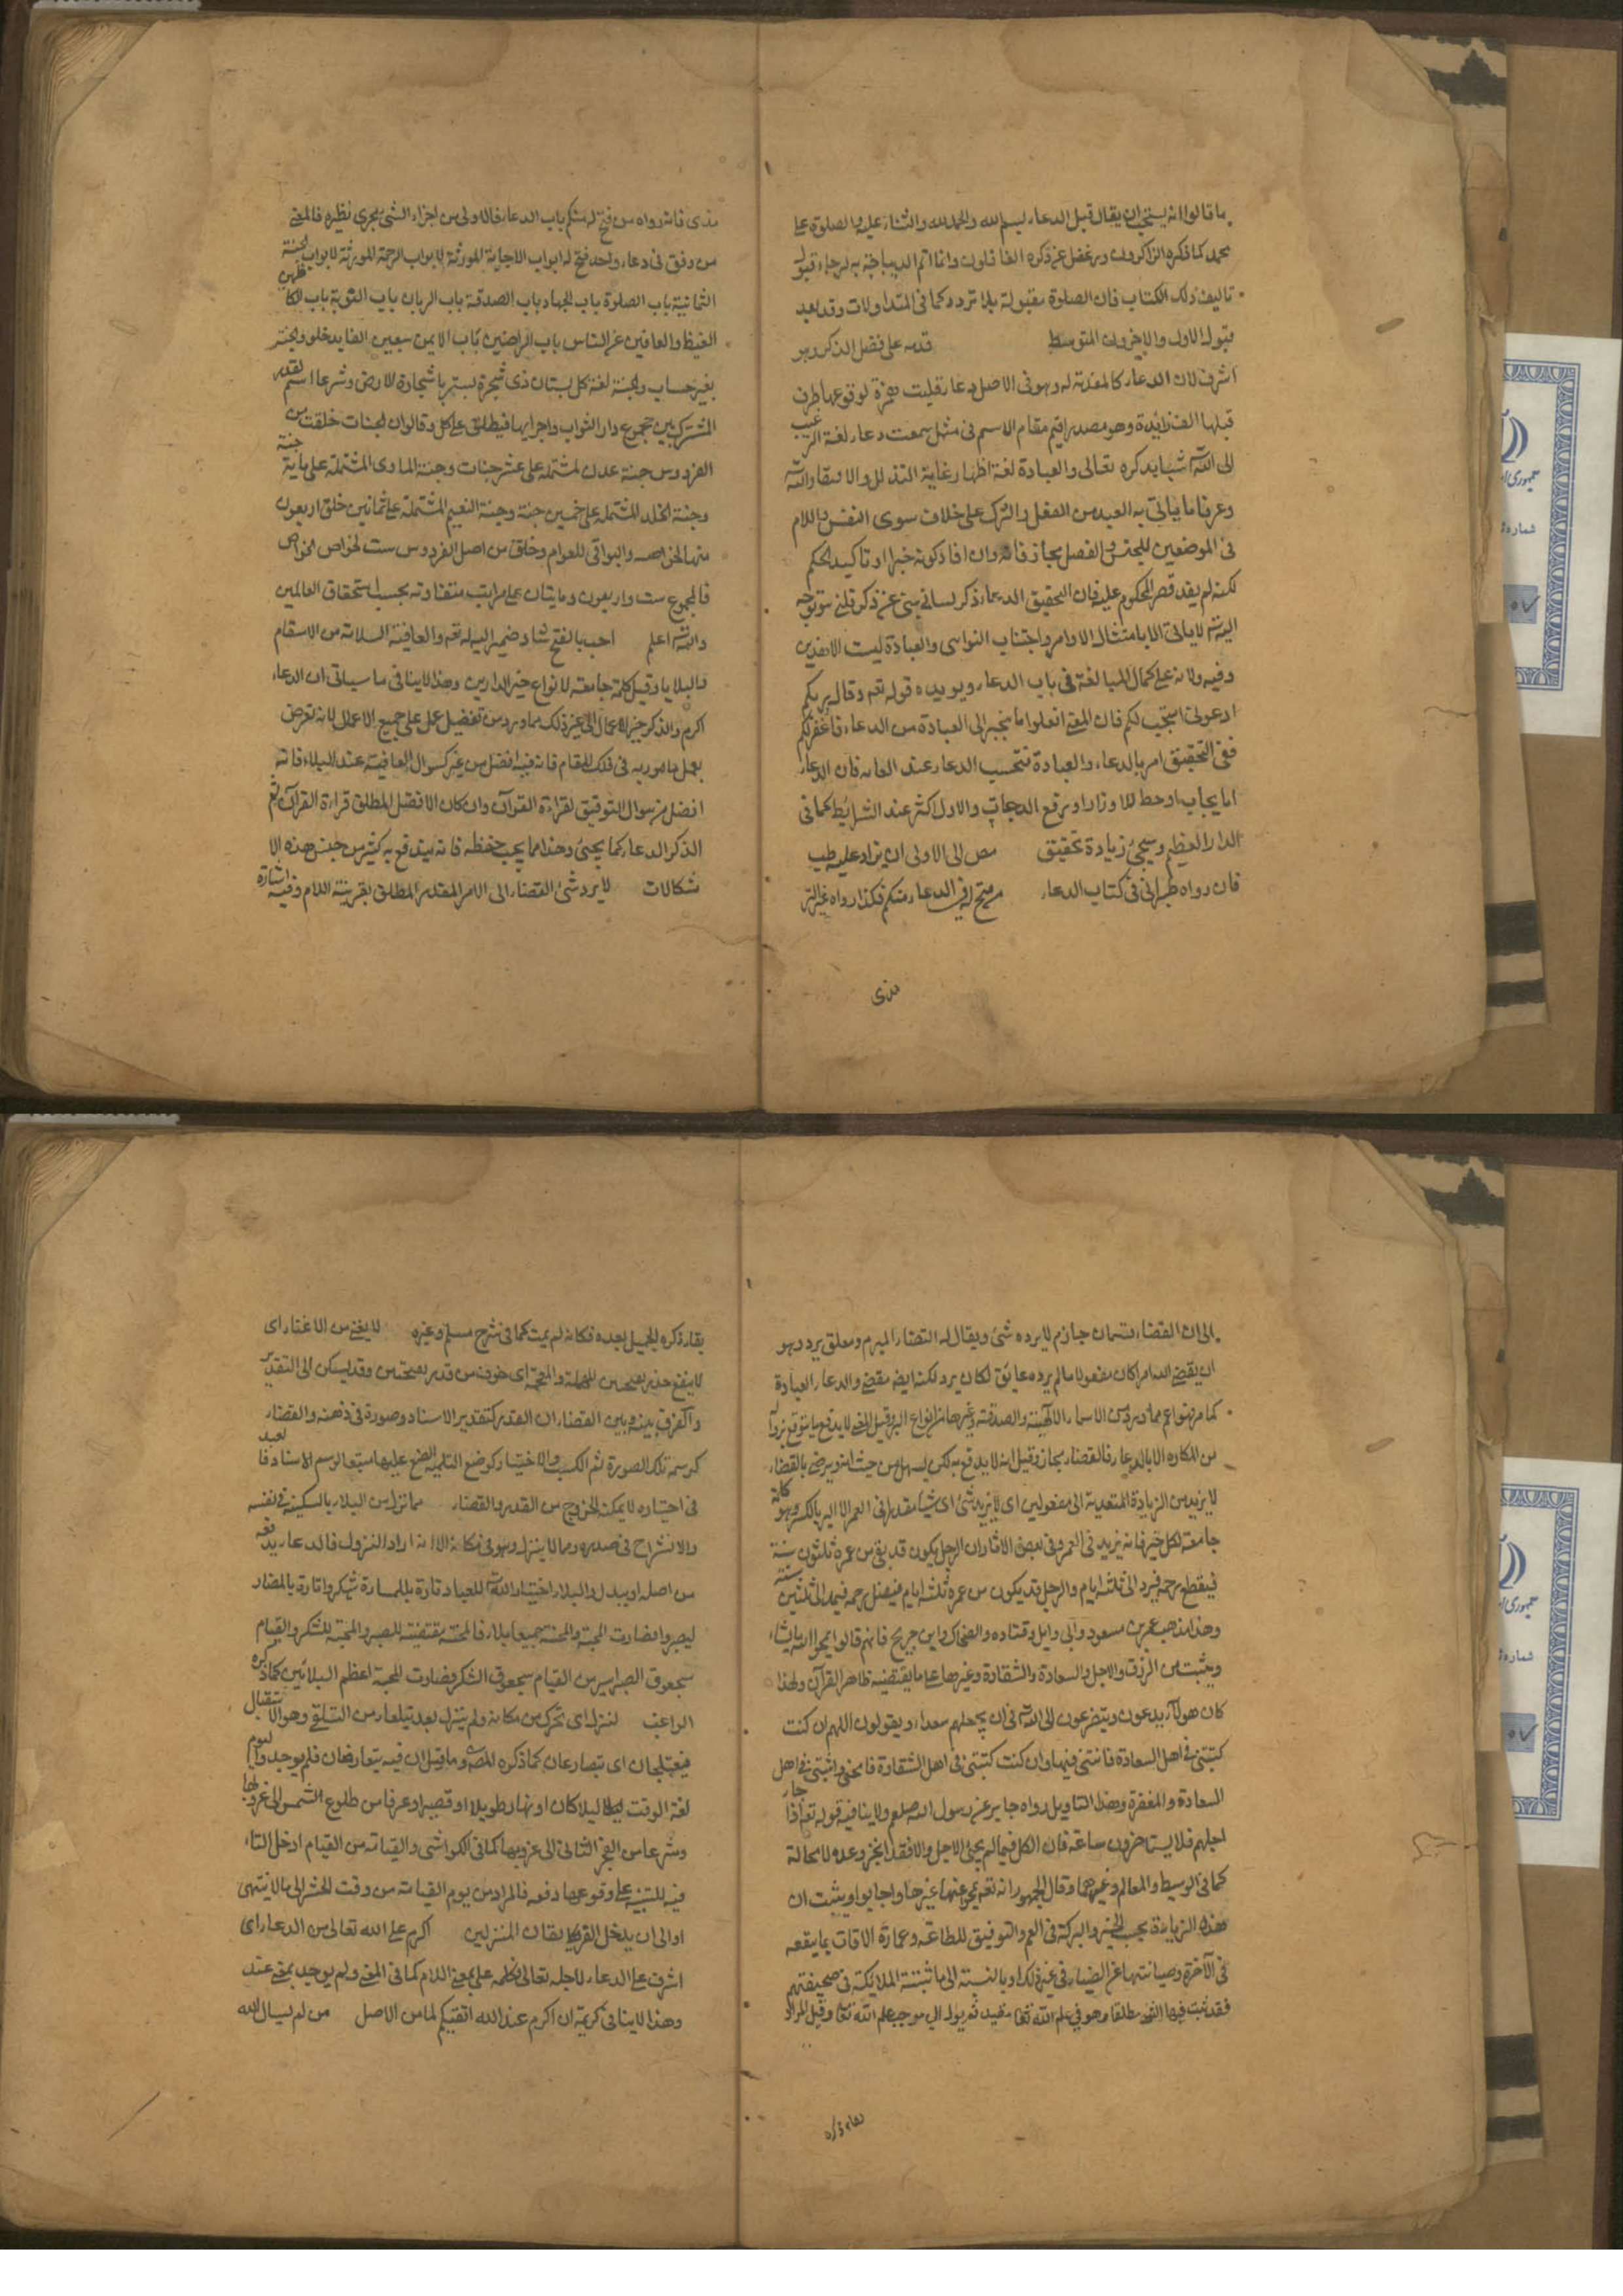 ما قالوا انه يستحب ان يقال قبل الدعاء بسم الله والحمد لله والثناء عليه والصلوة على
محمد كما ذكره الذاكرون وغفل عن ذكره الغافلون وانما اتم الديباجة به لرجاء قبول
تاليف ذلك الكتاب فان الصلوة مقبولة بلا تردد كما فى المتداولات وقد يعد
قبول الاول والاخر دون المتوسط قدمه على فضل الذكر وهو
اشرف لان الدعاء كالمقدمة له وهو فى الاصل دعاو قلبت همزة لوقوعها طرف
قبلها الف زائدة وهو مصدر اقيم مقام الاسم فى مثل سمعت دعاء لغة
الى الله اشياء بذكره تعالى والعبادة لغة اظهار غاية التذلل والانقياد لله
وعرفا ما ياتى به العبد من الفعل والترك على خلاف سوى النفس واللام
فى الموضعين للجنس والفصل مجاز فانه وان افاد كونه خبرا وتاكيد الحكم
لكنه لم يفد قصر المحكوم عليه فان التحقيق الدعاء ذكر لسانى ينبئ عن ذكر قلبى
اليه لا ياتى الا بامتثال الاوامر واجتناب النواهى والعبادة ليست الا هذين
وفيه دلالة على كمال المبالغة فى باب الدعاء ويويده قوله تعه وقال ربكم
ادعونى استجب لكم فان المعنى افعلوا ما ينجر الى العبادة من الدعاء فاغفر لكم
ففى التحقيق امر بالدعاء والعبادة تتحسب الدعاء عند العامة فان الدعاء
اما يجاب او حط للاوزار او رفع الدرجات والاول اكثر عند الشرايط كما فى
الدر النظيم وسيجئ زيادة تحقيق مص الى الاولى ان يزاد عليه طب
فان رواه طبرانى فى كتاب الدعاء من فتح له فى الدعاء منكم فكذا رواه غير التر
مذى
مذى فانه رواه من فتح له منكم باب الدعاء فالاولى من اجزاء الشئ مجرى نظيره فالمعنى
من وفق فى دعاء واحد فتح له ابواب الاجابة المورثة لابواب الرحمة المورثة لابواب الجنة
الثمانية باب الصلوة باب الجهاد باب الصدقة باب الريان باب التوبة باب الكاظمين
الغيظ والعافين عن الناس باب الراضين باب الايمن سبعين الفا يدخلون الجنة
بغير حساب والجنة لغة كل بستان ذى شجرة يستر باشجاره الارض وشرعا اسم لقدر
المشترك بين مجموع دار الثواب واجزايها فيطلق على كل وقالوا ان الجنات خلقت من
الفردوس جنة عدن المشتملة على عشر جنات وجنة الماوى المشتملة على ماية جنة
وجنة الخلد المشتملة على خمسين جنة وجنة النعيم المشتملة على ثمانين خلق اربعون
منها للخواص والبواقى للعوام وخلق من اصل الفردوس ست لخواص الخواص
فالمجموع ست واربعون ومايتان على مراتب متفاوتة بحسب استحقاق العالمين
والله اعلم احب بالفتح شاذ ضمير اليه لله تعه والعافية السلامة من الاسقام
والبلايا وقيل كلمة جامعة لانواع خير الدارين وهذا لا ينافى ما سياتى ان الدعاء
اكرم والذكر خير الاعمال الى غير ذلك مما ورد من تفضيل عمل على جميع الاعمال لانه تعرض
بعمل مامور به فى ذلك المقام فانه فيه افضل من غيره كسوال العافية عند البلاء فانه
افضل من سوال التوفيق لقراءة القرآن وان كان الافضل المطلق قراءة القرآن ثم
الذكر الدعاء كما يجئ وهذا مما يجب حفظه فانه يندفع به كثير من جنس هذه الا
شكالات لا يرد شئ القضاء الى الامر المقدر المطلق بقرينة اللام وفيه اشارة
الى ان القضاء قسمان جازم لا يرده شئ ويقال له القضاء المبرم ومعلق يرد وهو
ان يقضى الله امرا كان مفعولا مالم يرده عايق لكان يرد لكنه ايضا مقضى والدعاء العبادة
كما مر فهو اعم مما ورد من الاسماء الالهية والصدقة وغيرهما من انواع البر وقيل المعنى لا يدفع ما يتوقع نزوله
من المكاره الا بالدعاء فالقضاء مجاز وقيل انه لا يدفع به لكن يسهل من حيث انه ويرضى بالقضاء
لا يزيد من الزيادة المتعدية الى مفعولين اى لا يزيد شئ اى شيا مقدرا فى العمر الا البر بالكسر وهو كلمة
جامعة لكل خير فانه يزيد فى العمر وفى بعض الاثار ان الرجل يكون قد بقى من عمره ثلثون سنة
فيقطع رحمه فيرد الى ثلثة ايام والرجل قد يكون من عمره ثلثة ايام فيصل رحمه فيمد الى ثلثين سنة
وهذا مذهب عمر بن مسعود وابى وايل وقتاده والضحاك وابن جريج فانهم قالوا يمحو الله ما يشاء
ويثبت من الرزق والاجل والسعادة والشقاوة وغيرها على ما يقتضيه ظاهر القرآن ولهذا
كان هولاء يدعون ويتضرعون الى الله فى ان يجعلهم سعداء ويقولون اللهم ان كنت
كتبتنى فى اهل السعادة فاثبتنى فيها وان كنت كتبتنى فى اهل الشقاوة فامحنى واثبتنى فى اهل
السعادة والمغفرة وهذا التاويل رواه جابر عن رسول الله صلعم ولا ينافيه قوله تعه اذا جاء
اجلهم فلا يستاخرون ساعة فان الكل فيما لم يجئ الاجل والا فقد انجز وعده لا محالة
كما فى الوسيط والمعالم وغيرهما وقال الجمهور انه تعه يمحو عنها غيرها واجابوا ويثبت ان
هذه الزيادة بحسب الخير والبركة فى العمر والتوفيق للطاعة وعمارة الاوقات بما ينفعه
فى الآخرة وصيانتها عن الضياع فى غير ذلك او بالنسبة الى ما ثبتته الملايكة فى صحيفتهم
فقد ثبت فيها الشئ مطلقا وهو فى علم الله تعا مقيد ثم يول الى موجب علم الله تعا وقيل المراد
بقاء ذكره
بقاء ذكره الجميل بعده فكانه لم يمت كما فى شرح مسلم وغيره لا يغنى من الاغناء اى
لا ينفع حذر بفتحتين المهملة والمعجمة اى خوف من قدر بفتحتين وقد يسكن اى التقدير
والفرق بينه وبين القضاء ان القدر كتقدير الاستاد وصورة فى ذهنه والقضاء
كرسمه تلك الصورة ثم الكسب والاختيار كوضع التلميذ الصنع عليها متبعا لرسم الاستاد فالعبد
فى اختياره لا يمكنه الخروج من القدر والقضاء مما نزل من البلاء بالسكينة فى نفسه
والانشراح فى صدره ومما لا ينزل وهو فى مكانه الا انه اراد النزول فالدعاء يدفعه
من اصله او يبدل والبلاء اختبار الله للعباد تارة بالمسارة ليشكروا تارة بالمضار
ليصبروا فصارت المحنة والمنحة جميعا بلاء فالمحنة مقتضية للصبر والمنحة للشكر والقيام
بحقوق الصبر ايسر من القيام بحقوق الشكر فصارت المنحة اعظم البلائين كما ذكره
الراغب لينزل اى تحرك من مكانه ولم ينزل بعد يتلقاه من التلقى وهو الاستقبال
فيعتلجان اى يتصارعان كما ذكره المصه وما قيل ان فيه يتعارضان فلم يوجد واليوم
لغة الوقت ليلا كان او نهار طويلا او قصيرا وعرفا من طلوع الشمس الى غروبها
وشرعا من الفجر الثانى الى غروبها كما فى الكواشى والقيامة من القيام ادخل التاء
فيه للتنبيه على وقوعها دفعه فالمراد من يوم القيامة من وقت الحشر الى ما لا يتناهى
او الى ان يدخل الفريقان المنزلين اكرم على الله تعالى من الدعاء اى
اشرف على الدعاء لاجله تعالى فكلمة على بمعنى اللام كما فى المغنى ولم يوجد بمعنى عند
وهذا لا ينافى كريمة ان اكرمكم عند الله اتقيكم لما من الاصل من لم يسال الله